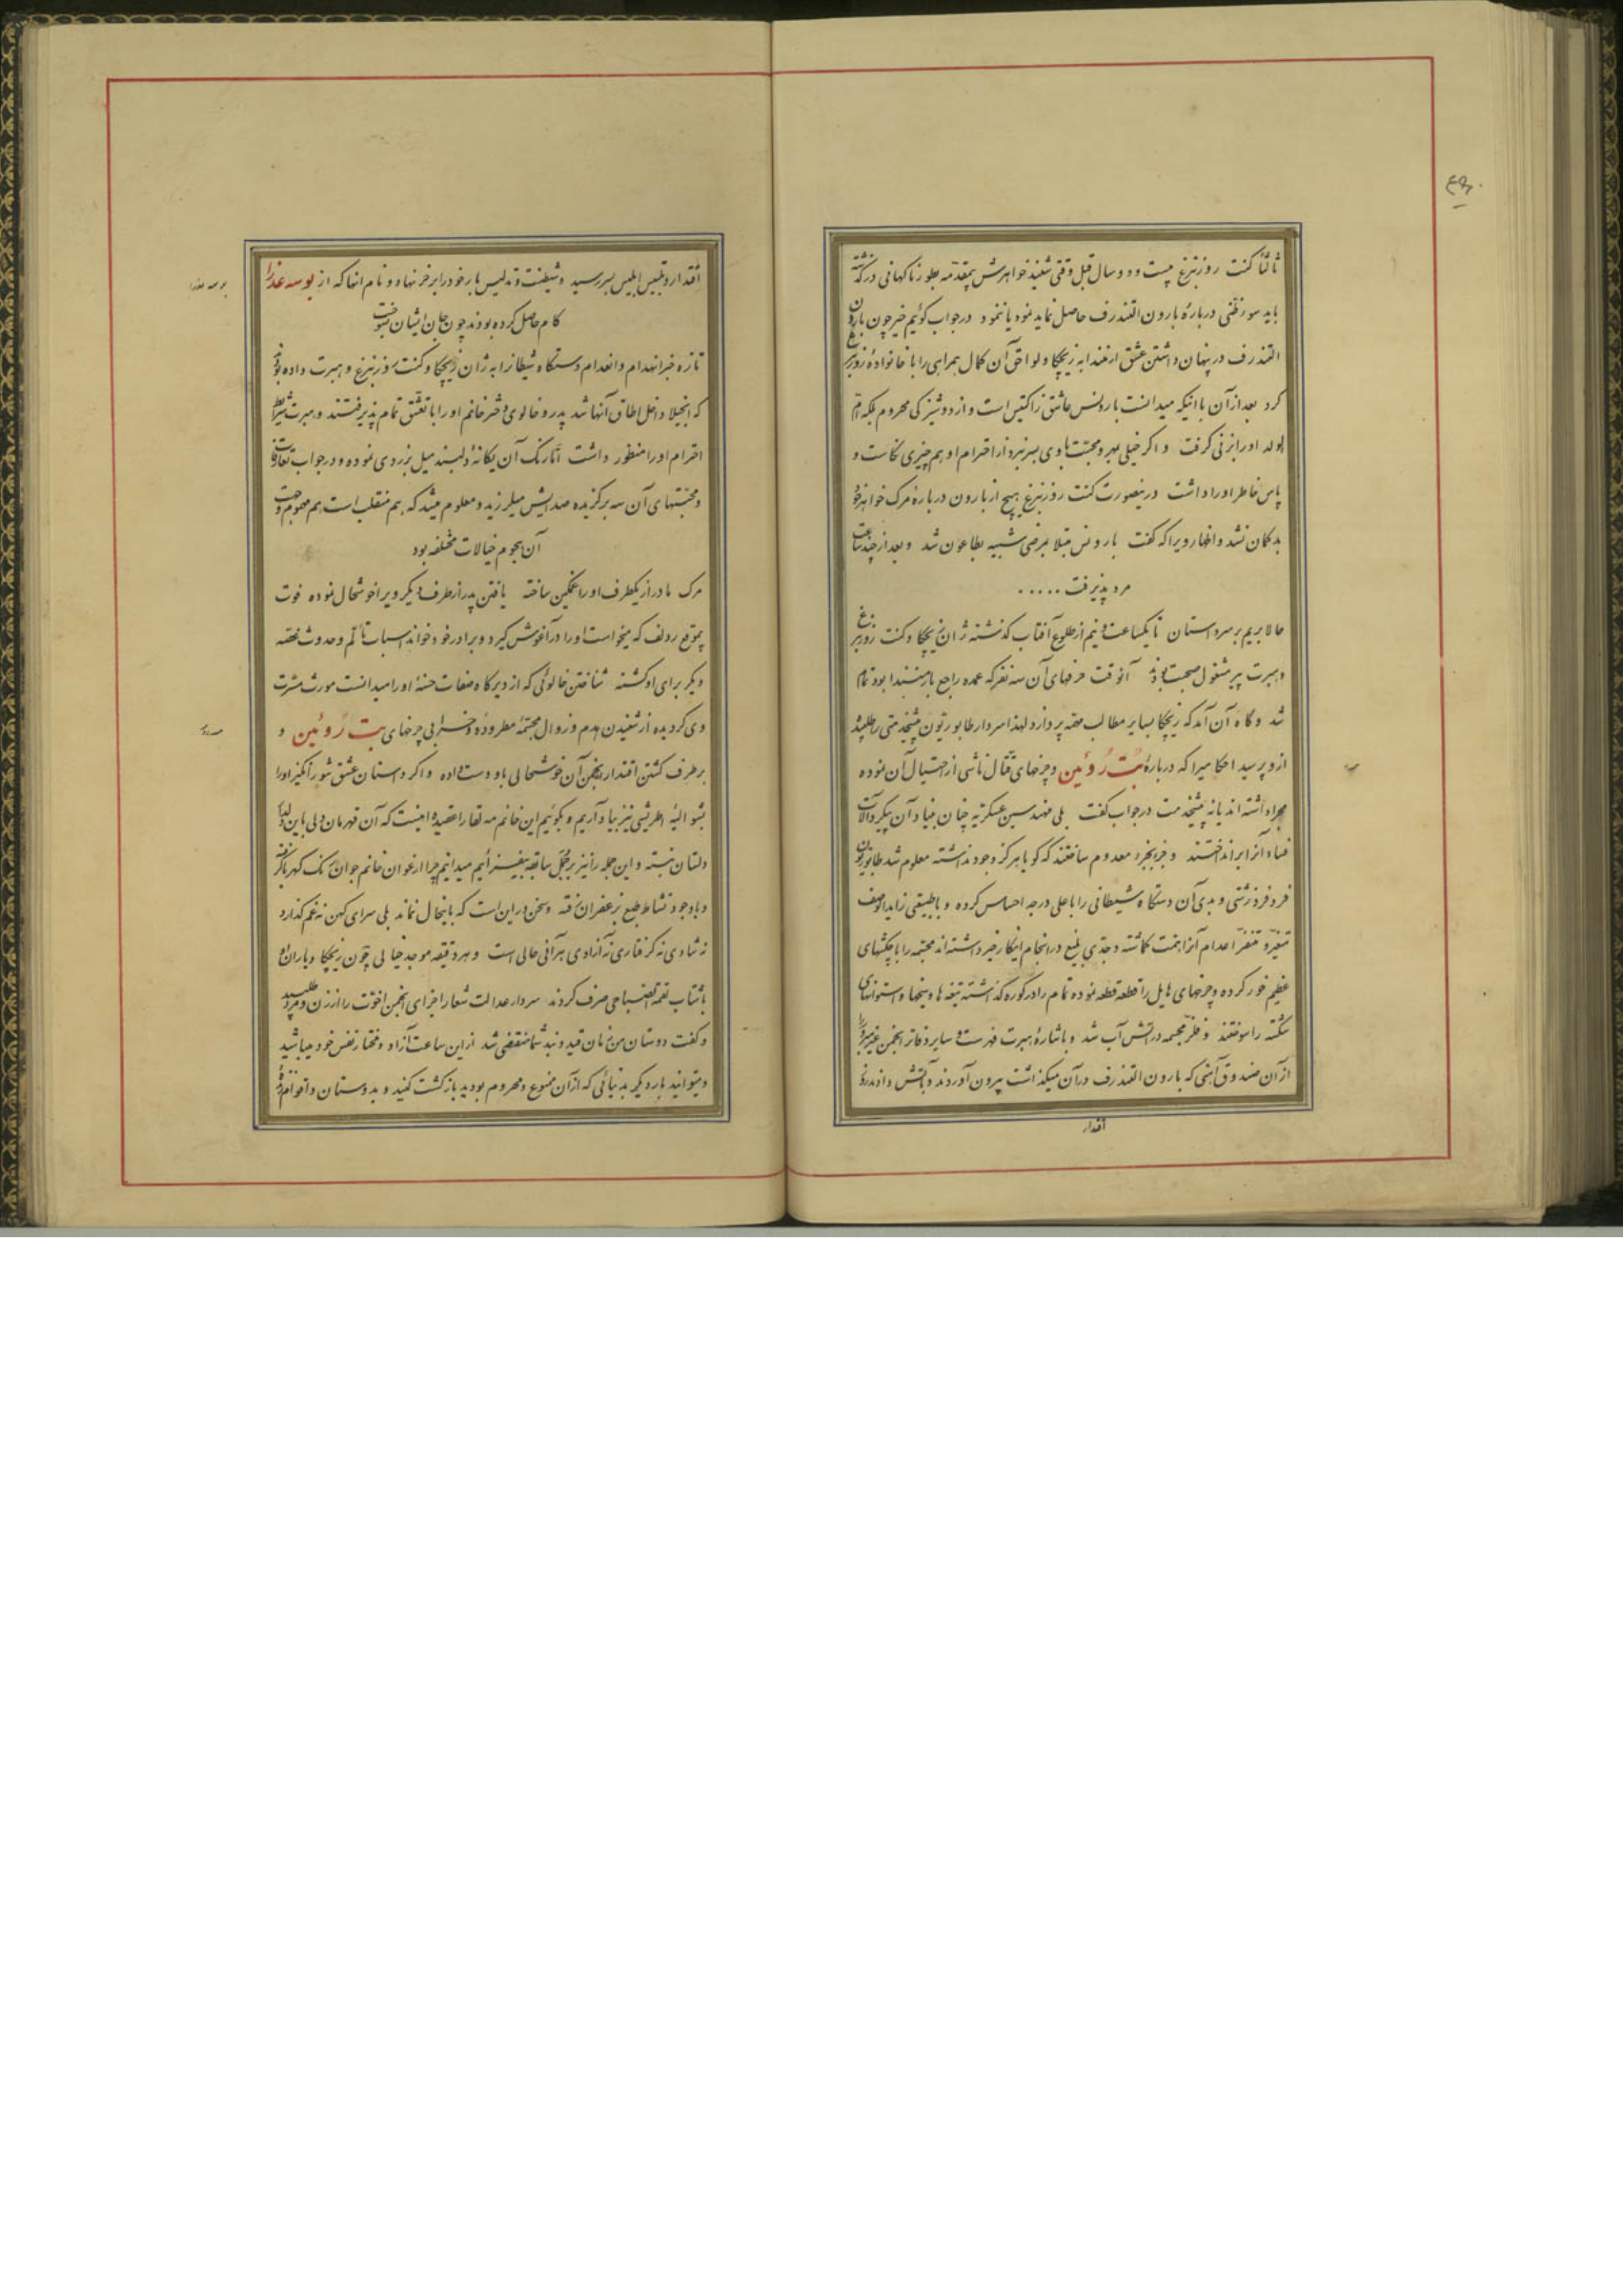 ثالثاً کنت روزنبرغ بیست و دو سال قبل وقتی شنید خواهرش بی‌مقدمه بطور ناکهانی درکذشته
باید سوء ظنی دربارهٔ بارون التندرف حاصل نماید نمود یا ننمود در جواب کوئیم خیر چون بارون
التندرف در پنهان داشتن عشق ارمندا به زیچکا و لواحق آن کمال همراهی را با خانوادهٔ روزنبرغ
کرد بعد از آن با اینکه میدانست بارونس عاشق ژاکتیس است و از دوشیزکی محروم بلکه امّ
ولد اورا بزنی کرفت و اکر خیلی بمهر و محبت با وی بسر نبرد از احترام او هم چیزی نکاست و
پاس خاطر اورا داشت درینصورت کنت روزنبرغ هیچ از بارون دربارهٔ مرک خواهر خود
بدکمان نشد و اظهار ویرا که کفت بارونس مبتلا بمرضی شبیه بطاعون شد و بعد از چند ساعت
مرد پذیرفت .....
حالا بریم بر سر داستان تا یکساعت و نیم از طلوع آفتاب کذشته ژان زیچکا و کنت روزنبرغ
و هبرت پیر مشغول صحبت بودند آنوقت حرفهای آن سه نفر که عمده راجع بارمنندا بود تمام
شد و کاه آن آمد که زیچکا بسایر مطالب مهمه پردازد لهذا سردار طابوریتون پیشخدمتی را طلبید
ازو پرسید احکامیرا که دربارهٔ بُت رُوئین و چرخهای قتّال ناشی از احتیال آن نموده
مجرا داشته‌اند یا نه پیشخدمت در جواب کفت بلی مهندسین عسکریه چنان بنیاد آن پیکر و آلات
فساد آنرا برانداختند و جزء بجزء معدوم ساختند که کویا هرکز وجود نداشته معلوم شد طابوریتون
فرد فرد زشتی و بدی آن دستکاه شیطانی را باعلی درجه احساس کرده و با طبیعتی زاید الوصف
متغیر و متنفر اعدام آنرا همت کماشته و جدّی بلیغ در انجام اینکار خیر داشته‌اند مجسّمه را با چکشهای
عظیم خورد کرده و چرخهای هایل را قطعه قطعه نموده تمام را در کوره کذاشته تیغه‌ها و میخها و استوانهای
شکسته را سوختند و فلزّ مجسمه در آتش آب شد و باشارهٔ هبرت فهرست و سایر دفاتر انجمن غیر مبرور را
از آن صندوق آهنی که بارون التندرف در آن میکذاشت بیرون آوردند و بآتش دادند روز
اقتدار
اقتدار و تلبیس ابلیس بسر رسید و شیطنت و تدلیس بار خود را بر خر نهاد و نام آنها که از بوسه عذرا
کام حاصل کرده بودند چون جان ایشان بسوخت
تازه خبر انهدام و انعدام دستکاه شیطانرا به ژان زیچکا و کنت روزنبرغ و هبرت داده بودند
که آنجیلا داخل اطاق آنها شد پدر و خالوی دختر خانم اورا با تعشق تمام پذیرفتند و هبرت شرایط
احترام اورا منظور داشت امّا رنک آن یکانهٔ دلبند میل بزردی نموده و در جواب تعارفات
و محبتهای آن سه برکزیده صدایش میلرزید و معلوم میشد که هم منقلب است هم مهموم و جهت
آن هجوم خیالات مختلفه بود
مرک مادر از یکطرف اورا غمکین ساخته یافتن پدر از طرف دیکر ویرا خوشحال نموده فوت
بموقع رودلف که میخواست اورا در آغوش کیرد و برادر خود خواند اسباب تألّم و حدوث غصّه
دیکر برای او کشته شناختن خالوئی که از دیرکاه صفات حسنهٔ اورا میدانست مورث مسرت
وی کردیده از شنیدن هدم و زوال مجسّمهٔ مطروده و خرابی چرخهای بت رُوئین و
برطرف کشتن اقتدار انجمن آن خوشحالی باو دست داده و اکر داستان عشق شورانکیز اورا
بشوالیهٔ اطریشی نیز بیاد آریم و بکوئیم این خانم مه لقا را عقیده اینست که آن قهرمان دل باین دلدار
دلستان نبسته و این جمله را نیز بر جُمَل سابقه بیفزائیم میدانیم چرا ارغوان خانم جوان رنک کهربا کرفته
و با وجود نشاط طبع بزعفران رفته و سخن در این است که باینحال نماند بلی سرای کهن نه غم کذارد
نه شادی نه کرفتاری نه آزادی هر آنی حالی است و هر دقیقه موجد خیالی چون زیچکا و یاران او
باشتاب لقمة الصباحی صرف کردند سردار عدالت شعار اجزای انجمن اخوت را از زن و مرد طلبید
و کفت دوستان من زمان قید و بند شما منقضی شد از این ساعت آزاد و مختار نفس خود میباشید
و میتوانید بار دیکر بدنیائی که از آن ممنوع و محروم بودید بازکشت کنید و بدوستان و اقوام خود
بوسه عذرا